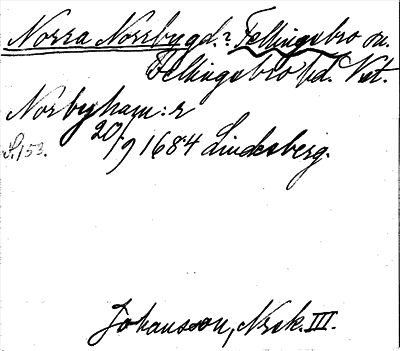 Norra Norrbygd? Fellingsbro sn.
Fellingsbro hd. Vst.
Norbyham: r
20/9 1684 Lindesberg.
S. 153.
Johansson, Nzsk. III.